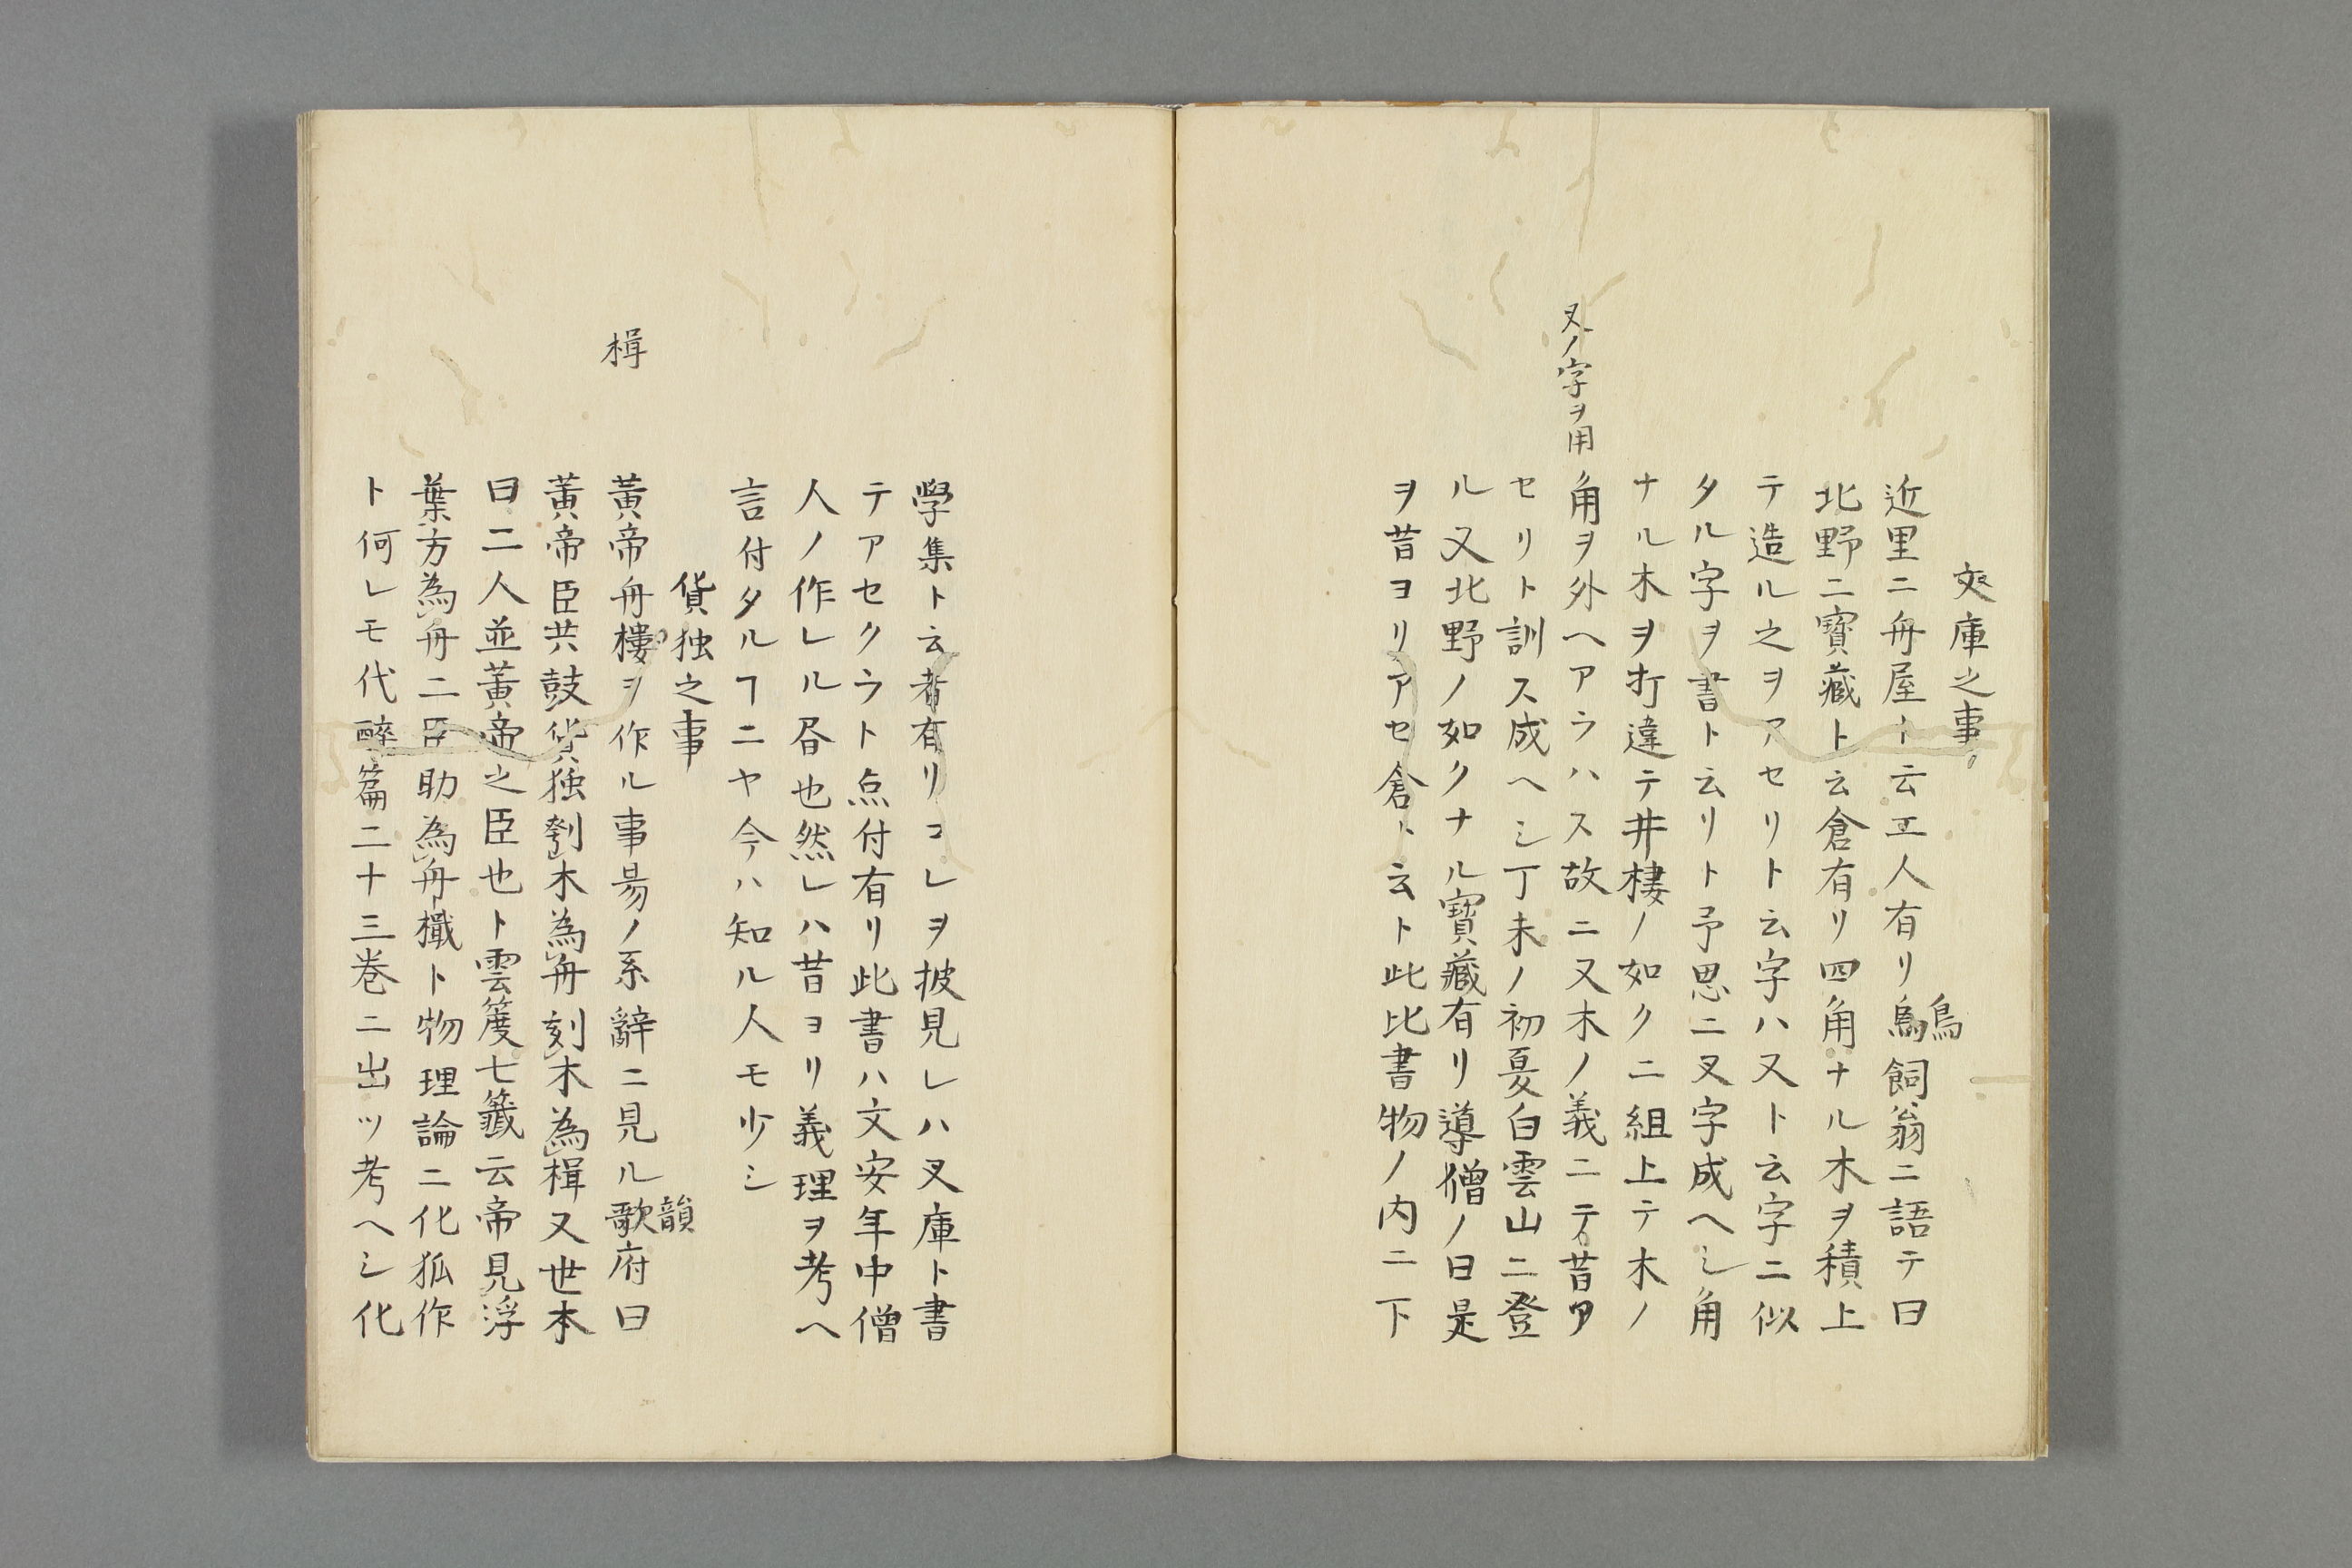 叉庫之事
近里ニ舟屋ト云工人有リ鳥飼翁ニ語テ曰
鳥
北野ニ寳藏ト云倉有リ四角ナル木ヲ積上
テ造ル之ヲアセリト云字ハ又ト云字ニ似
タル字ヲ書ト云リト予思ニ叉字成ヘシ角
ナル木ヲ打違テ井樓ノ如クニ組上テ木ノ
叉ノ字ヲ用
角ヲ外ヘアラハス故ニ又木ノ義ニテ昔ア
セリト訓ス成ヘシ丁未ノ初夏白雲山ニ登
ル又北野ノ如クナル寳藏有リ導僧ノ曰是
ヲ昔ヨリアセ倉ト云ト此比書物ノ内ニ下
學集ト云者有リコレヲ披見レハ叉庫ト書
テアセクラト点付有リ此書ハ文安年中僧
人ノ作レル昏也然レハ昔ヨリ義理ヲ考ヘ
言付タルヿニヤ今ハ知ル人モ少シ
貨独之事
楫
黃帝舟樓ヲ作ル事昜ノ系辭ニ見ル歌府曰
韻
黃帝臣共鼓貨独刳木為舟刻木為楫又世本
曰二人並黃帝之臣也ト雲笈七籤云帝見浮
葉方為舟二臣助為舟檝ト物理論ニ化狐作
ト何レモ代醉篇二十三巻ニ出ツ考ヘシ化